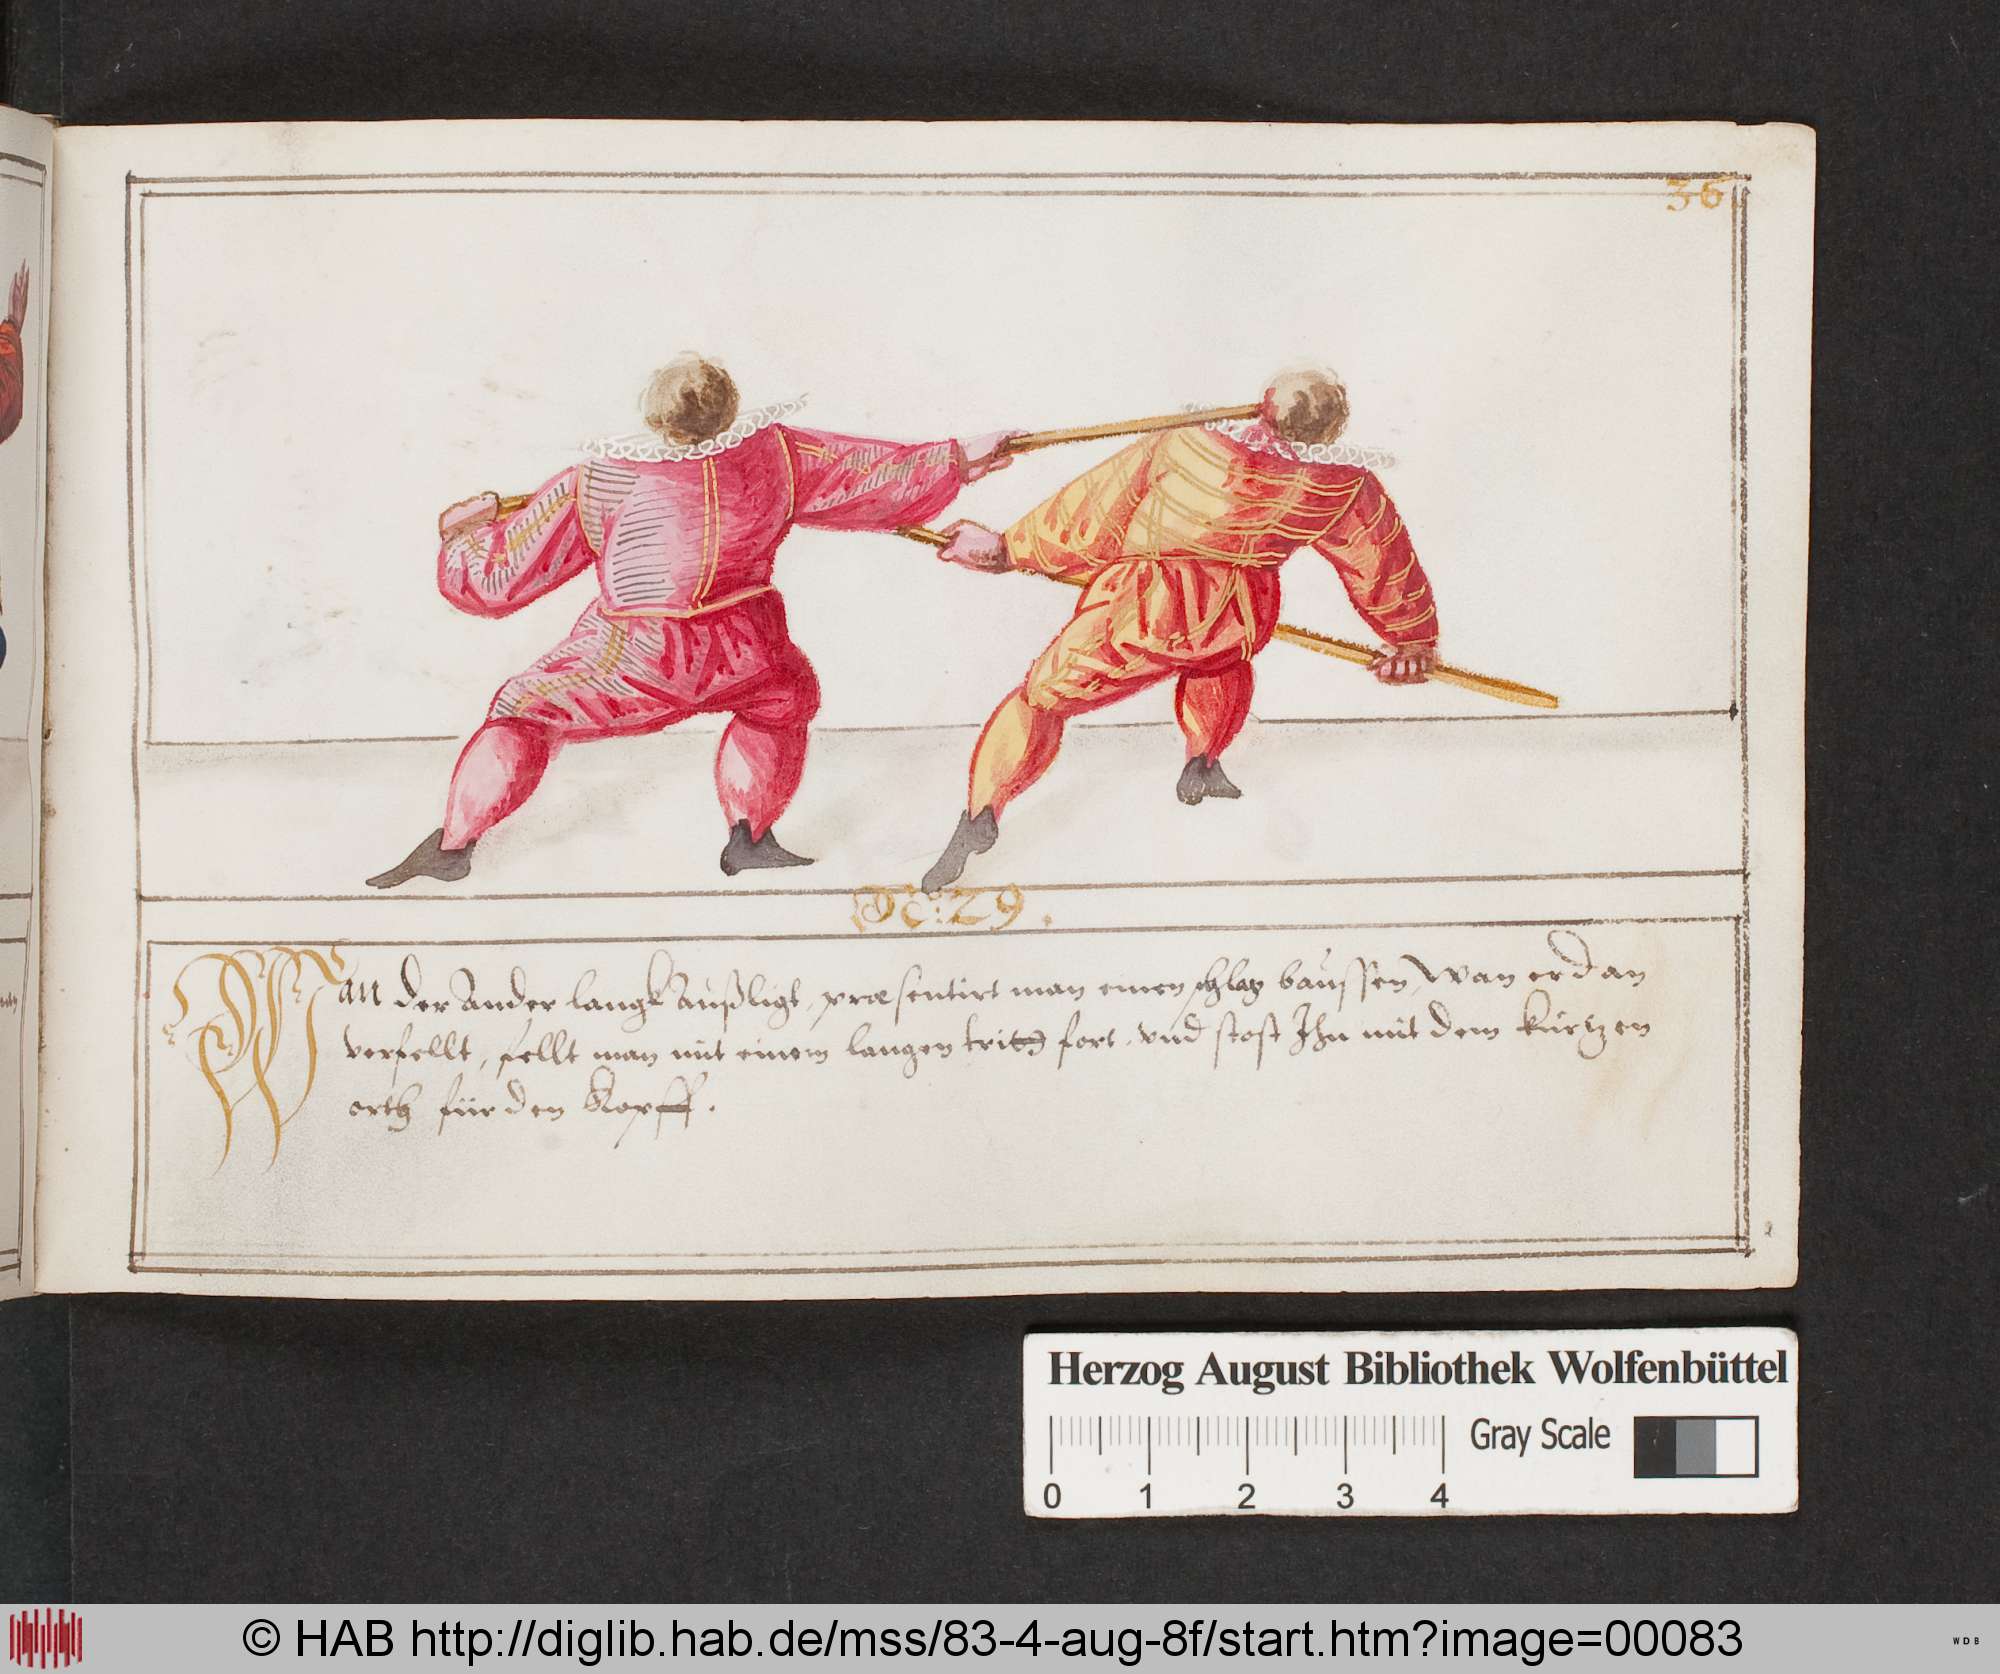 36
N: 29.
Wan der Ander langk Außligt, præsentirt man einen schlag baussen, Wan er dan
verfellt, fellt man mit einem langen tritt fort, vnd stost Ihn mit dem kurtzen
orth für den Kopff.
Herzog August Bibliothek Wolfenbüttel
Gray Scale
0 1 2 3 4
© HAB http://diglib.hab.de/mss/83-4-aug-8f/start.htm?image=00083
WDB